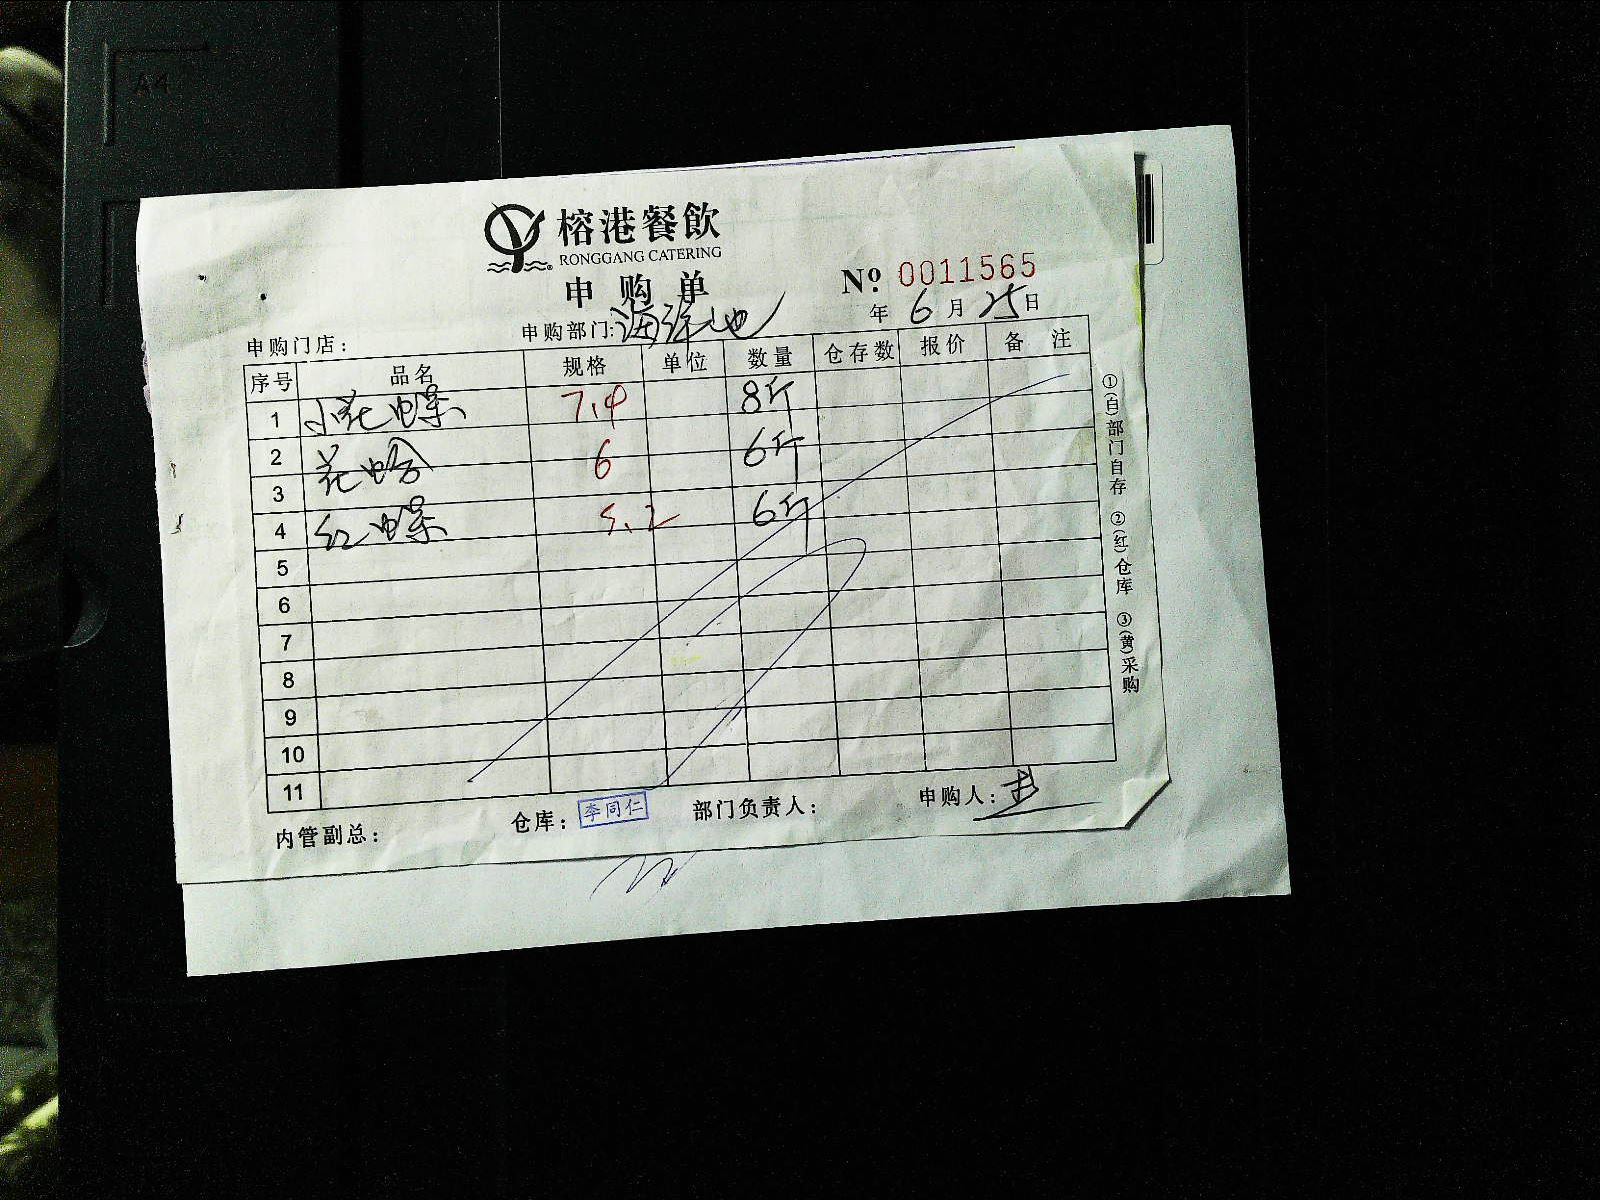 A4
榕港餐飲
RONGGANG CATERING
申购单
№ 0011565
年 6 月 25 日
申购门店： 申购部门:海鲜池
序号 品名 规格 单位 数量 仓存数 报价 备注
1 小花螺 7.4 8斤
2 花蛤 6 6斤
3
4 红螺 5.2 6斤
5
6
7
8
9
10
11
内管副总： 仓库：李同仁 部门负责人： 申购人：
①(白)部门自存 ②(红)仓库 ③(黄)采购